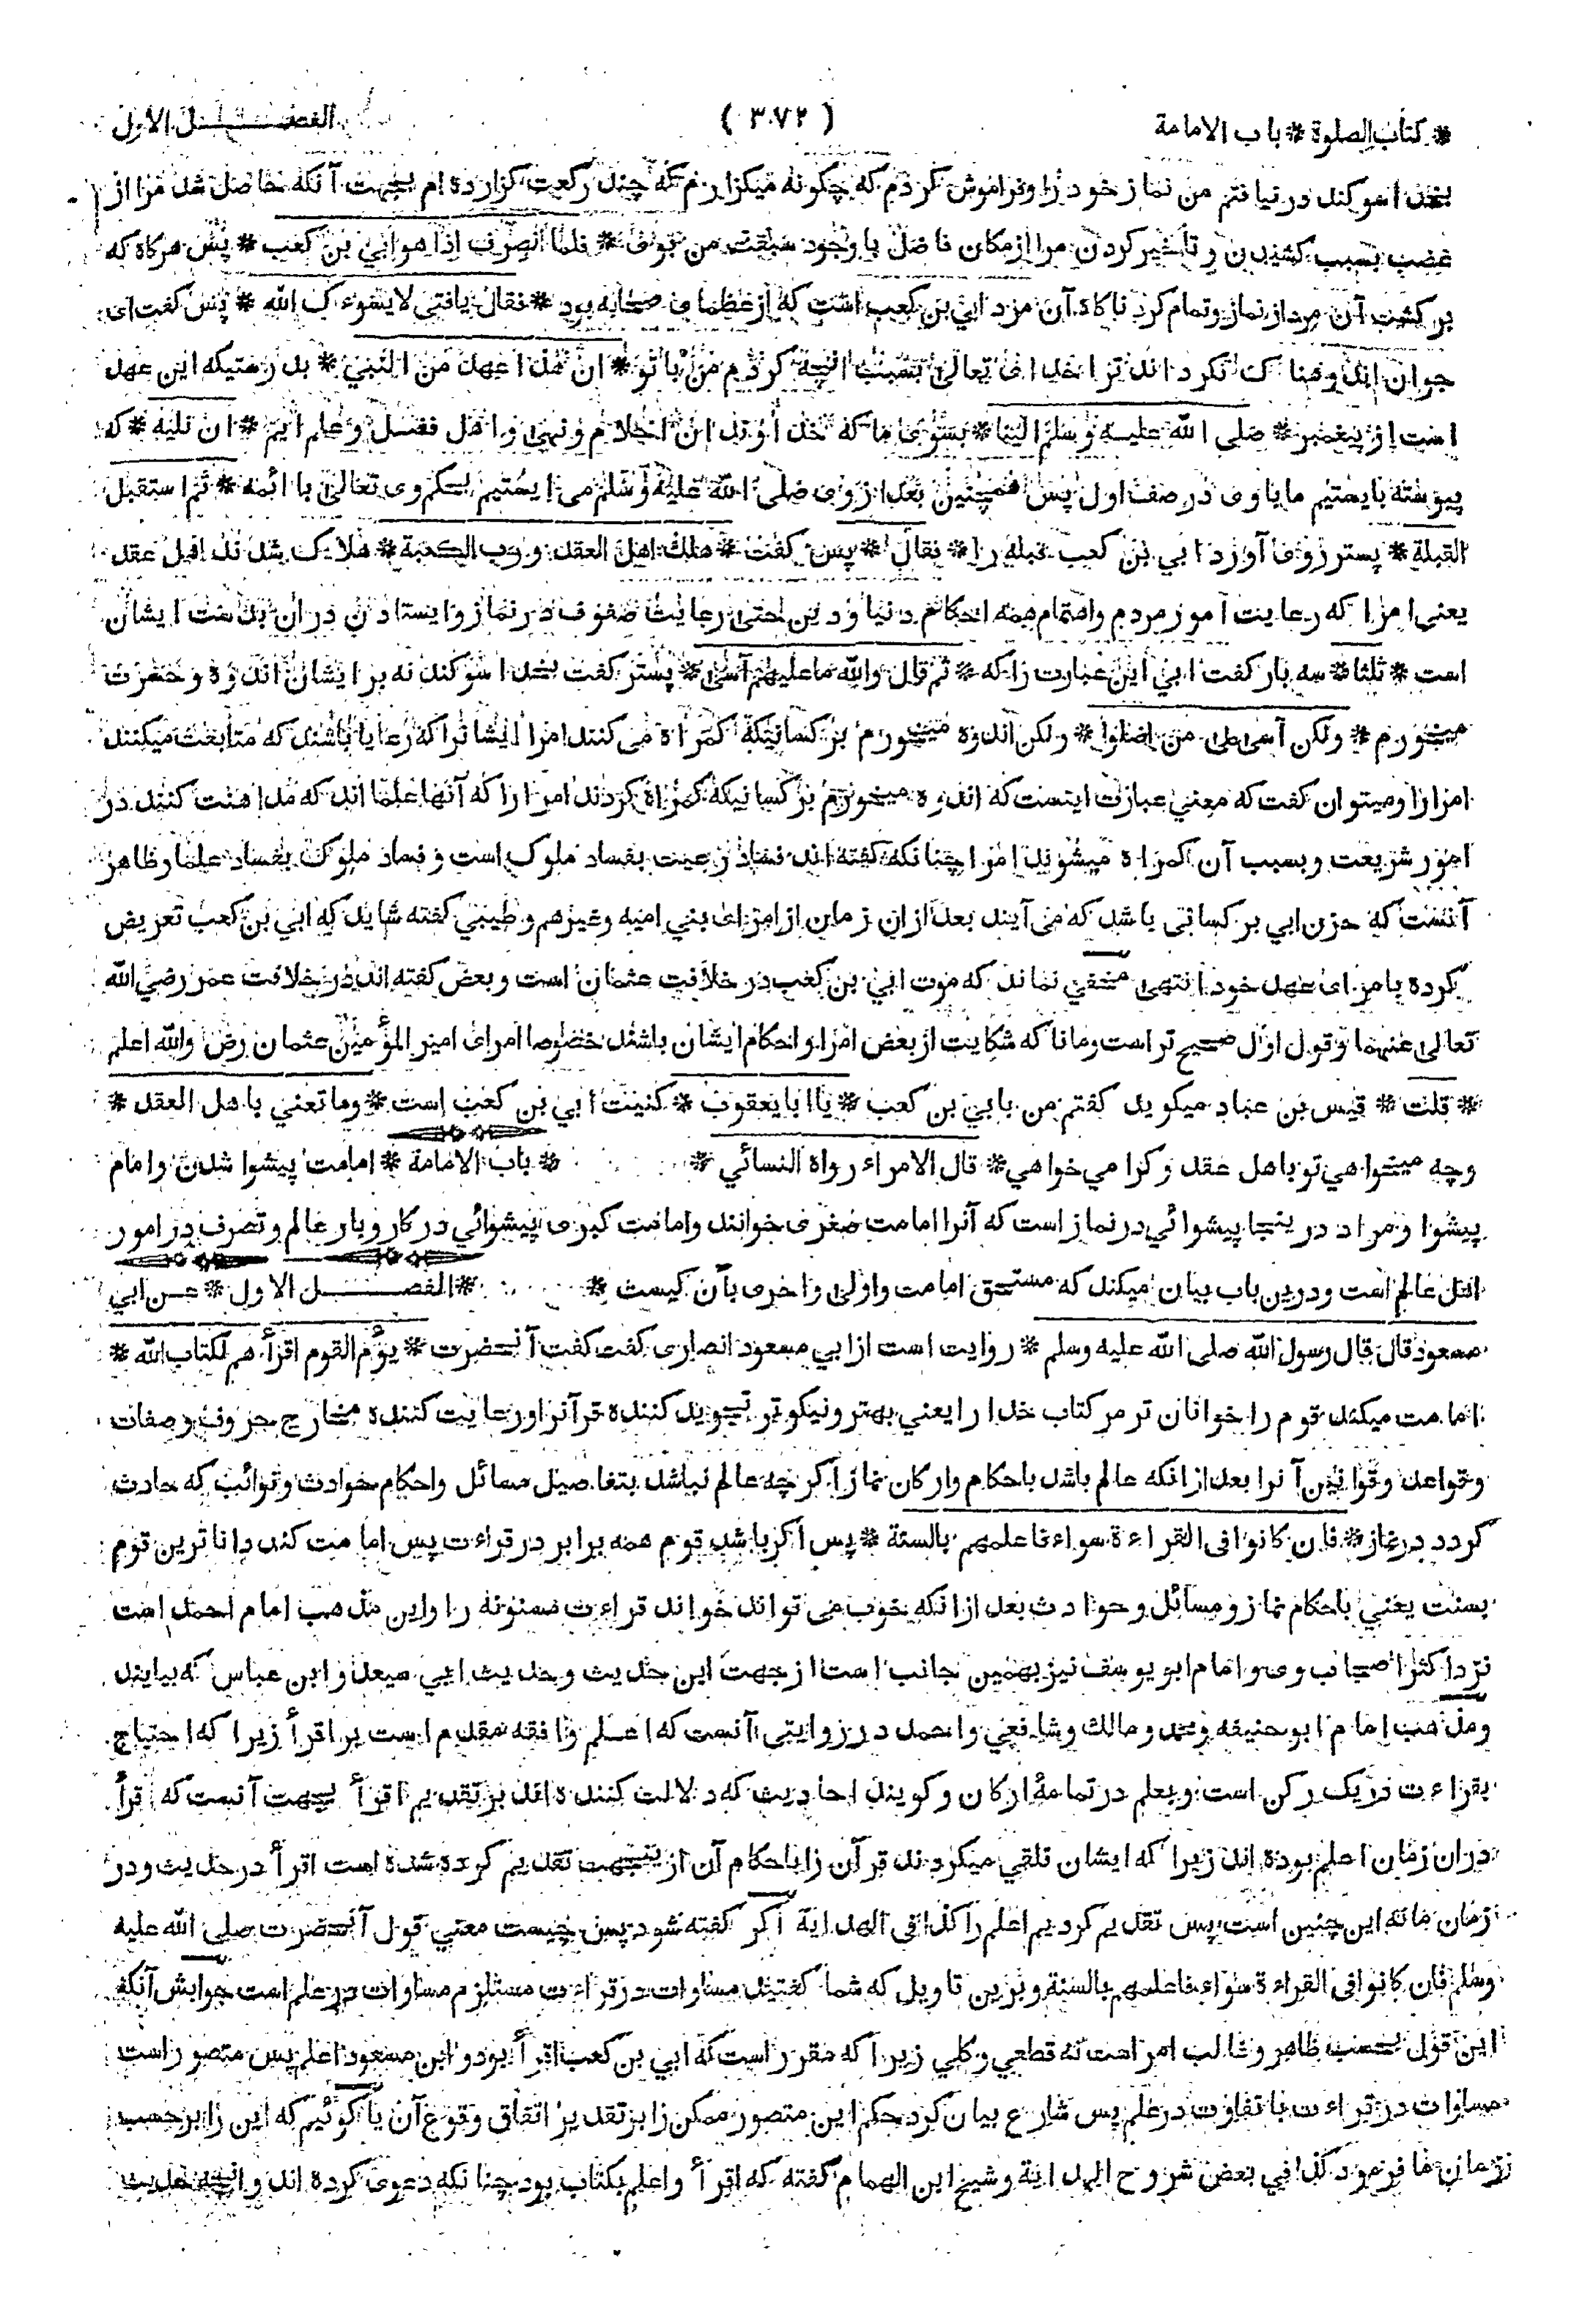 * کتاب الصلوة * باب الامامة (۳۷۲) الفصل الاول
بخدا سوکند در نیافتم من نماز خود را و فراموش کردم که چکونه میکزارم که چند رکعت کزارده ام بجهت آنکه حاصل شد مرا از
غضب بسبب کشیدن و تأخیر کردن مرا از مکان فاضل با وجود سبقت من بوی * فلما انصرف اذا هو ابی بن کعب * پس هرکاه که
برکشت آن مرد از نماز و تمام کرد ناکاه آن مرد ابی بن کعب است که از عظمای صحابه بود * فقال یافتی لا یسوءک الله * پس کفت ای
جوان اندوهناک نکرداند ترا خدای تعالی بسبب آنچه کردم من با تو * ان هذا عهد من النبی * بدرستیکه این عهد
است از پیغمبر * صلی الله علیه وسلم الینا * بسوی ما که خداوندان احلام ونهی و اهل فضل وعلم ایم * ان نلیه * که
پیوسته بایستیم ما با وی در صف اول پس همچنین بعد از وی صلی الله علیه وسلم می ایستیم بحکم وی تعالی با ائمه * ثم استقبل
القبلة * پستر روی آورد ابی بن کعب قبله را * فقال * پس کفت * هلک اهل العقد ورب الکعبة * هلاک شدند اهل عقد
یعنی امرا که رعایت امور مردم واهتمام همه احکام دنیا و دین حتی رعایت صفوف در نماز و ایستادن دران بدست ایشان
است * ثلثا * سه بار کفت ابی این عبارت را که * ثم قال والله ما علیهم آسی * پستر کفت بخدا سوکند نه بر ایشان اندوه و حسرت
میخورم * ولکن آسی علی من اضلوا * ولکن اندوه میخورم بر کسانیکه کمراه می کنند امرا ایشانرا که رعایا باشند که متابعت میکنند
امرا را ومیتوان کفت که معنی عبارت اینست که اندوه میخورم بر کسانیکه کمراه کردند امرا را که آنها علما اند که مداهنت کنند در
امور شریعت و بسبب آن کمراه میشوند امرا چنانکه کفته اند فساد رعیت بفساد ملوک است و فساد ملوک بفساد علما و ظاهر
آنست که حزن ابی بر کسانی باشد که می آیند بعد ازان زمان از امرای بنی امیه وغیرهم و طیبی کفته شاید که ابی بن کعب تعریض
کرده بامرای عهد خود انتهی مخفی نماند که موت ابی بن کعب در خلافت عثمان است و بعض کفته اند در خلافت عمر رضی الله
تعالی عنهما و قول اول صحیح تر است ومانا که شکایت از بعض امرا و احکام ایشان باشد خصوصا امرای امیر المؤمنین عثمان رض والله اعلم
* قلت * قیس بن عباد میکوید کفتم من بابی بن کعب * یا ابا یعقوب * کنیت ابی بن کعب است * وما تعنی باهل العقد *
وچه میخواهی تو باهل عقد و کرا می خواهی * قال الامراء رواه النسائی * * باب الامامة * امامت پیشوا شدن وامام
پیشوا و مراد درینجا پیشوائی در نماز است که آنرا امامت صغری خوانند وامامت کبری پیشوائی در کار و بار عالم و تصرف در امور
اهل عالم است و درین باب بیان میکند که مستحق امامت واولی واحری بآن کیست * * الفصل الاول * عن ابی
مسعود قال قال رسول الله صلی الله علیه وسلم * روایت است از ابی مسعود انصاری کفت کفت آنحضرت * یؤم القوم اقرأ هم لکتاب الله *
امامت میکند قوم را خوانان تر مر کتاب خدا را یعنی بهتر ونیکو تر تجوید کننده قرآنرا و رعایت کننده مخارج حروف و صفات
وقواعد وقوانین آنرا بعد ازانکه عالم باشد باحکام وارکان نماز اکرچه عالم نباشد بتفاصیل مسائل واحکام حوادث ونوائب که حادث
کردد در نماز * فان کانوا فی القراءة سواء فاعلمهم بالسنة * پس اکر باشد قوم همه برابر در قراءت پس امامت کند داناترین قوم
بسنت یعنی باحکام نماز ومسائل وحوادث بعد ازانکه خوب می تواند خواند قراءت مسنونه را واین مذهب امام احمد است
نزد اکثر اصحاب وی وامام ابو یوسف نیز بهمین جانب است از جهت این حدیث و حدیث ابی سعید وابن عباس که بیایند
ومذهب امام ابو حنیفه ومحمد ومالک وشافعی واحمد در روایتی آنست که اعلم وافقه مقدم است بر اقرأ زیرا که احتیاج
بقراءت در یک رکن است وبعلم در تمامهٔ ارکان وکویند احادیث که دلالت کننده اند بر تقدیم اقرأ بجهت آنست که اقرأ
دران زمان اعلم بوده اند زیرا که ایشان تلقی میکردند قرآن را باحکام آن ازینجهت تقدیم کرده شده است اقرأ در حدیث ودر
زمان ما نه این چنین است پس تقدیم کردیم اعلم را کذا فی الهدایة اکر کفته شود پس چیست معنی قول آنحضرت صلی الله علیه
وسلم فان کانوا فی القراءة سواء فاعلمهم بالسنة و برین تاویل که شما کفتید مساوات در قراءت مستلزم مساوات در علم است جوابش آنکه
این قول بحسب ظاهر و غالب امر است نه قطعی وکلی زیرا که مقرر است که ابی بن کعب اقرأ بود وابن مسعود اعلم پس متصور است
مساوات در قراءت با تفاوت در علم پس شارع بیان کرد حکم این متصور ممکن را بر تقدیر اتفاق وقوع آن یا کوئیم که این را بر حسب
زمان ما فرمود کذا فی بعض شروح الهدایة وشیخ ابن الهمام کفته که اقرأ واعلم بکتاب بود چنانکه دعوی کرده اند وآنچه حدیث